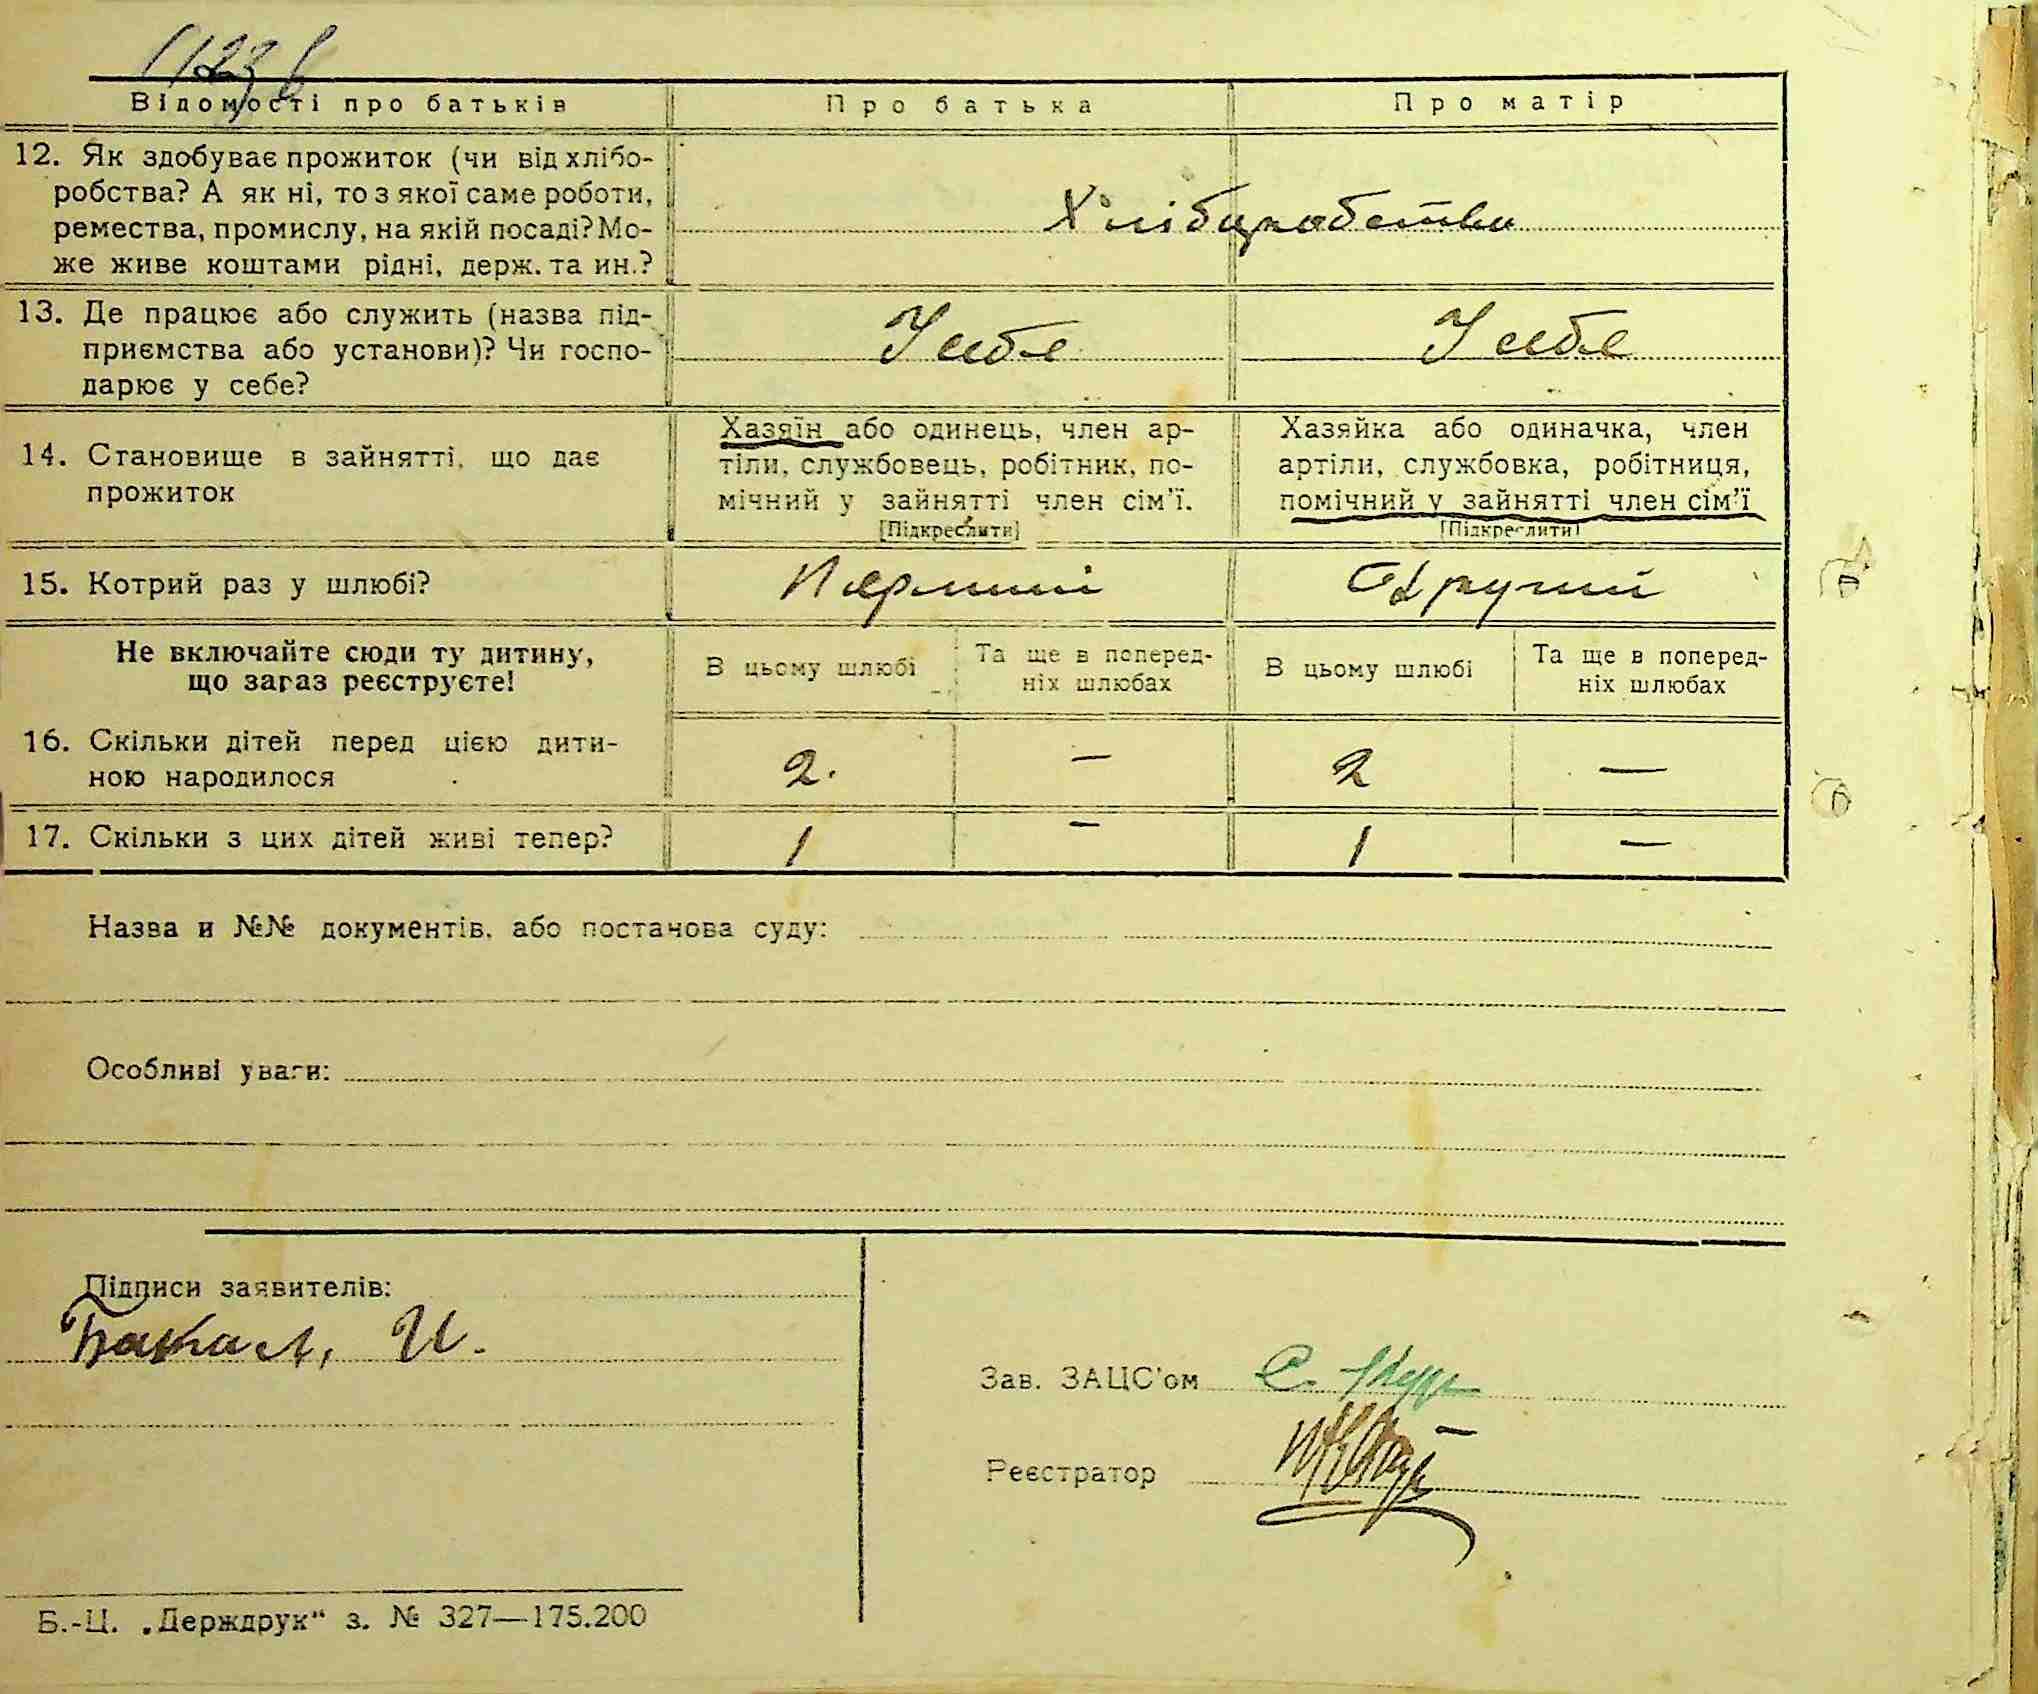 Відомості про батьків
Про батька
Про матір
12. Як здобуває прожиток (чи від хлібо-
робства? А як ні, то з якої саме роботи,
ремества, промислу, на якій посаді? Мо-
же живе коштами рідні, держ. та ин.?
Хліборобство
13. Де працює або служить (назва під-
приємства або установи)? Чи госпо-
дарює у себе?
У себе
У себе
14. Становище в зайнятті, що дає
прожиток
Хазяїн або одинець, член ар-
тіли, службовець, робітник, по-
мічний у зайнятті член сім'ї.
[Підкреслити]
Хазяйка або одиначка, член
артіли, службовка, робітниця,
помічний у зайнятті член сім'ї
[Підкреслити]
15. Котрий раз у шлюбі?
Перший
Другий
Не включайте сюди ту дитину,
що зараз реєструєте!
В цьому шлюбі
Та ще в поперед-
ніх шлюбах
В цьому шлюбі
Та ще в поперед-
ніх шлюбах
16. Скільки дітей перед цією дити-
ною народилося
2. — 2 —
17. Скільки з цих дітей живі тепер?
1 — 1 —
Назва и №№ документів, або постанова суду:
Особливі уваги:
Підписи заявителів:
И.
Зав. ЗАЦС'ом
Реєстратор
Б.-Ц. „Держдрук" з. № 327—175.200